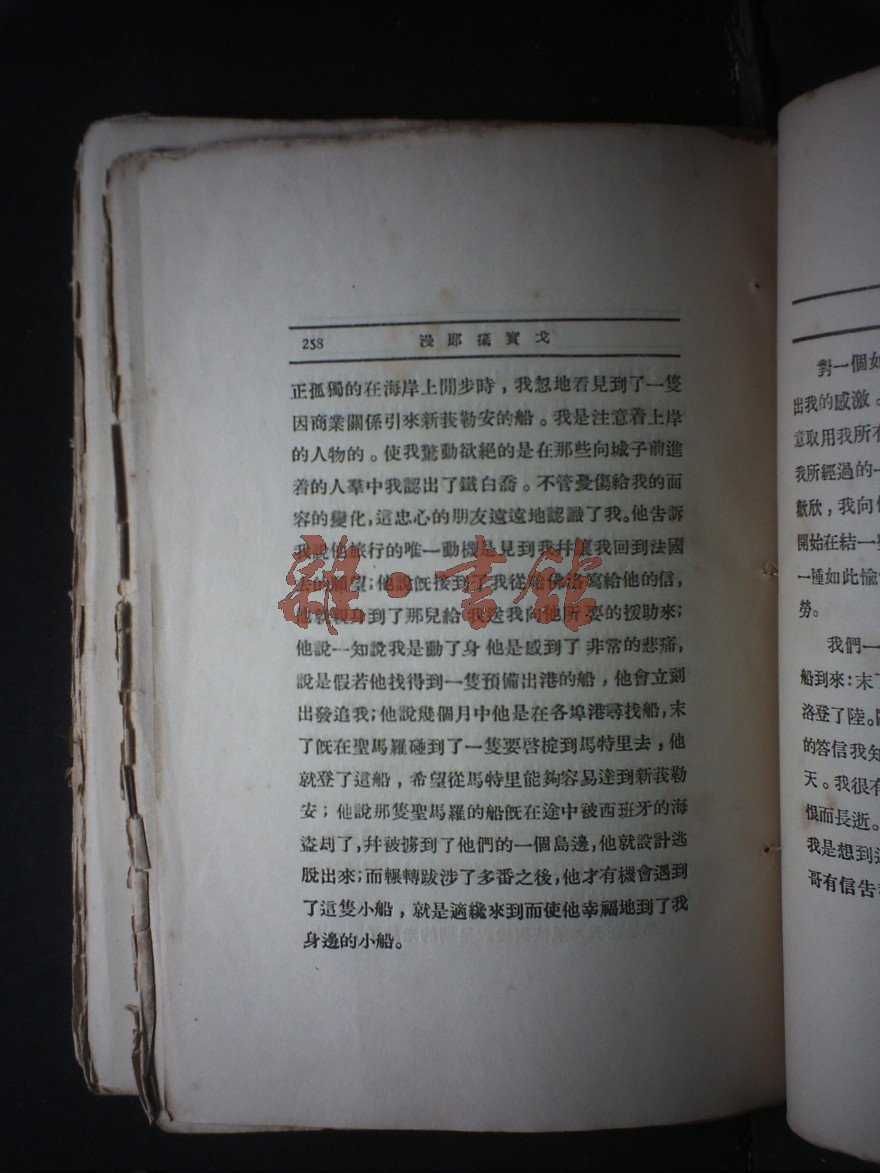 258 漫郎攝實戈
正孤獨的在海岸上閒步時，我忽地看見到了一隻
因商業關係引來新莪勒安的船。我是注意着上岸
的人物的。使我驚動欲絕的是在那些向城子前進
着的人羣中我認出了鐵白喬。不管憂傷給我的面
容的變化，這忠心的朋友遠遠地認識了我。他告訴
我說他旅行的唯一動機是見到我幷讓我回到法國
去的願望；他說旣接到了我從哈佛洛寫給他的信，
他就親身到了那兒給我送我向他所要的援助來；
他說一知說我是動了身他是感到了非常的悲痛，
說是假若他找得到一隻預備出港的船，他會立刻
出發追我；他說幾個月中他是在各埠港尋找船，末
了旣在聖馬羅碰到了一隻要啓椗到馬特里去，他
就登了這船，希望從馬特里能夠容易達到新莪勒
安；他說那隻聖馬羅的船旣在途中被西班牙的海
盜刦了，幷被擄到了他們的一個島邊，他就設計逃
脫出來；而輾轉跋涉了多番之後，他才有機會遇到
了這隻小船，就是適纔來到而使他幸福地到了我
身邊的小船。
雜·書館
對一個如
出我的感激。
意取用我所有
我所經過的一
歡欣，我向他
開始在結一
一種如此愉
勞。
我們一
船到來：末了
洛登了陸。
的答信我知
天。我很有
恨而長逝。
我是想到這
哥有信告